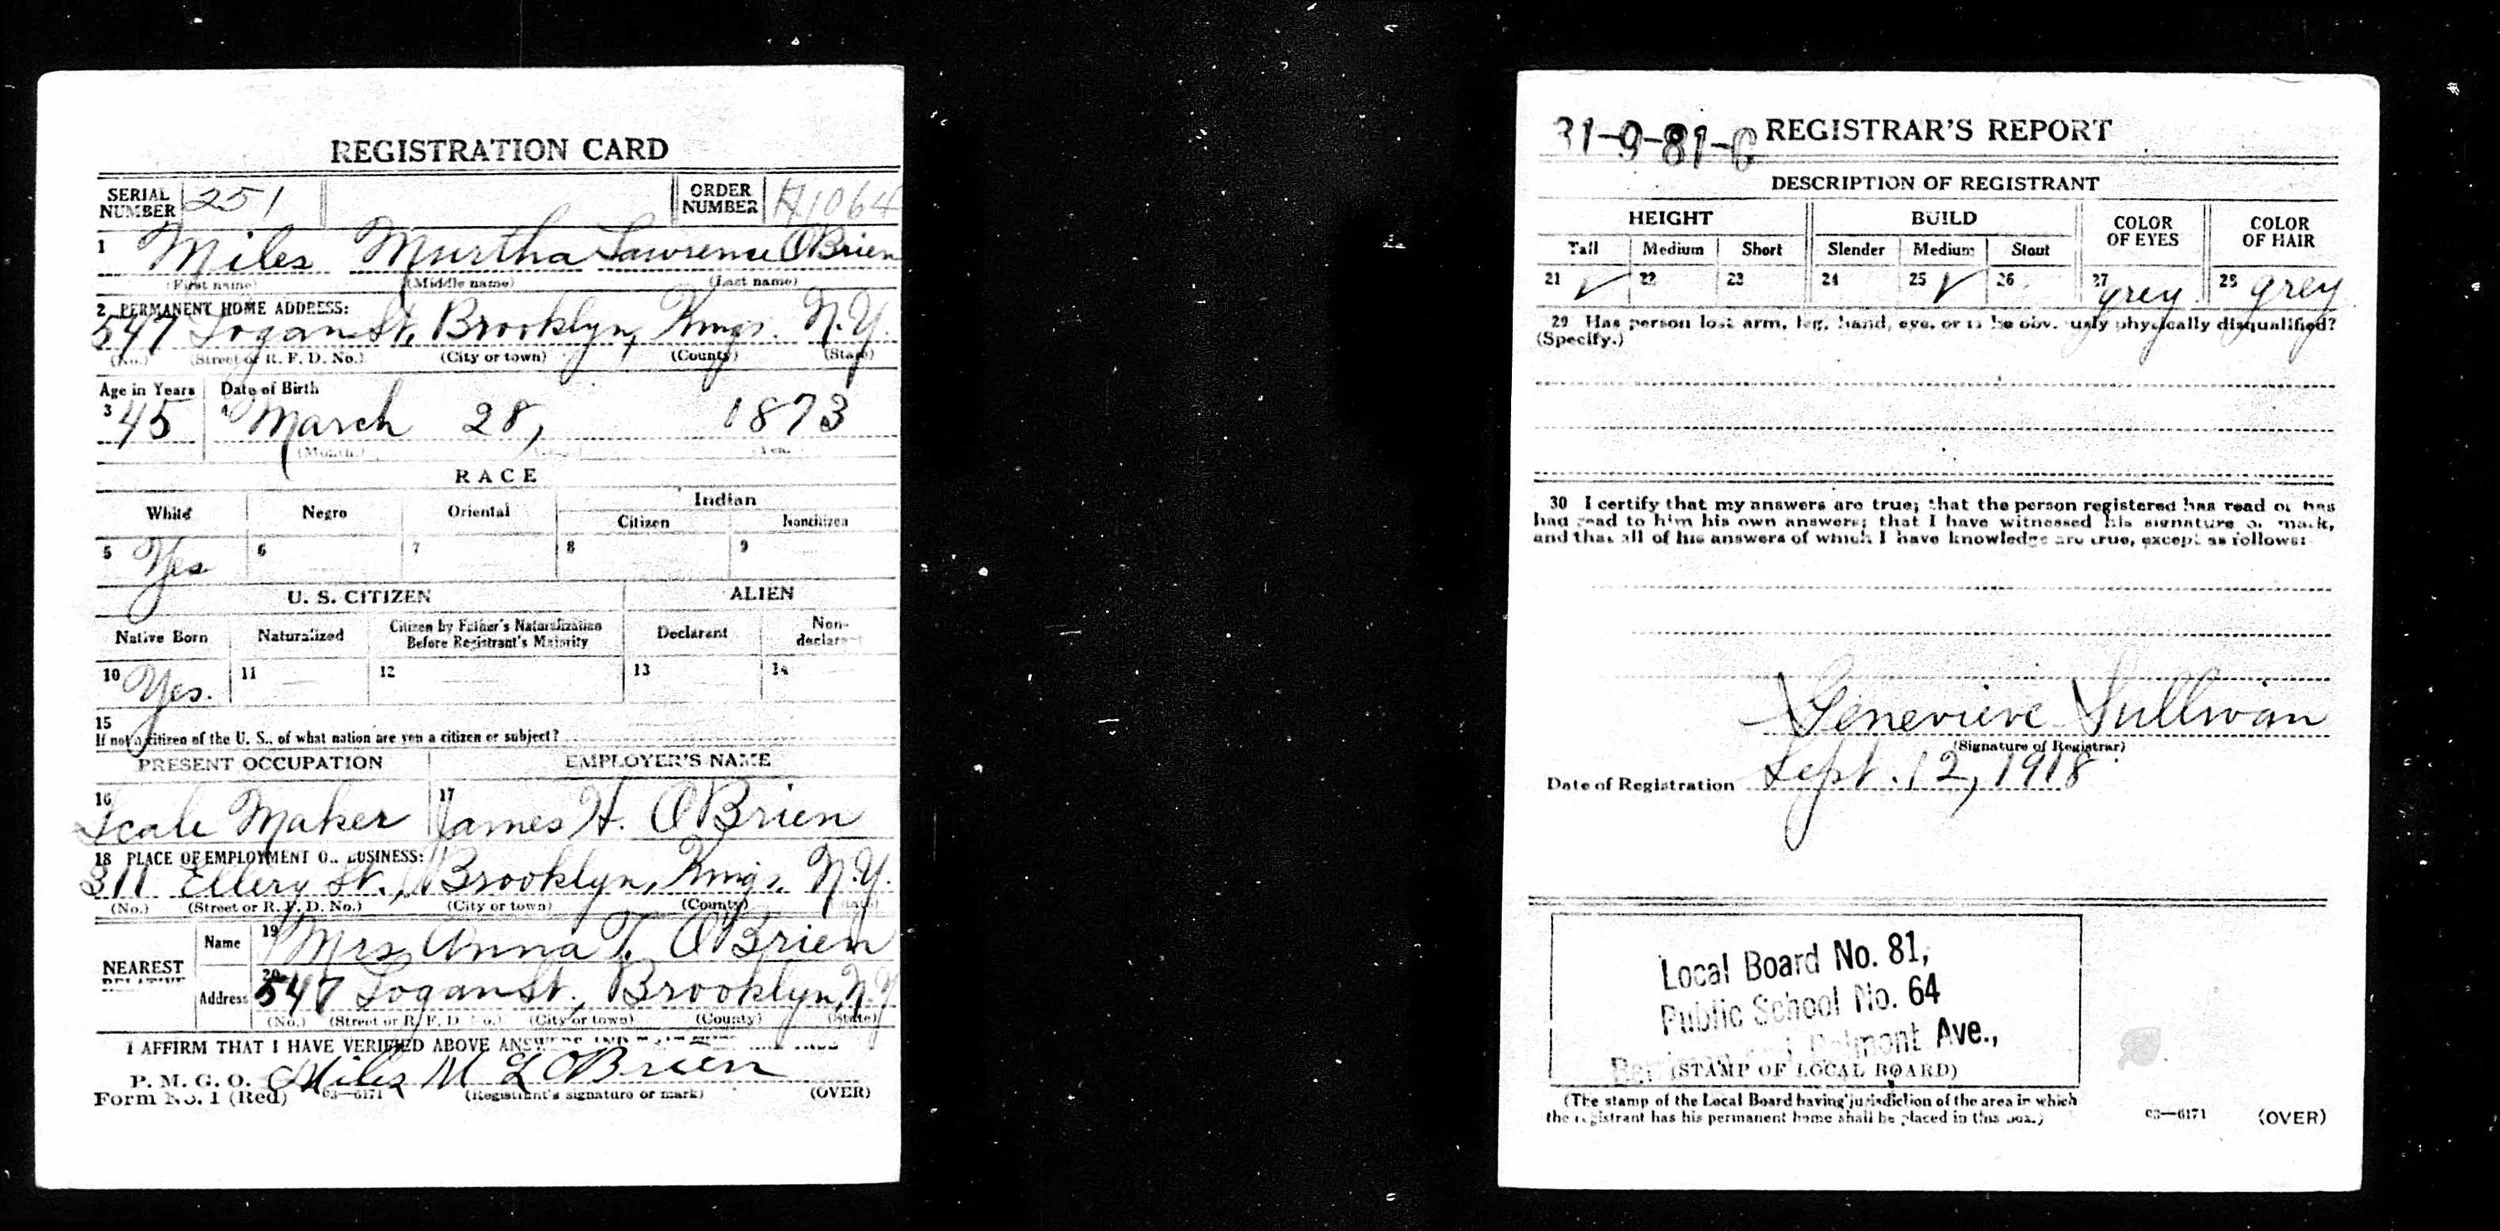 REGISTRATION CARD
SERIAL NUMBER 251 ORDER NUMBER A1064
1 Miles Murtha Lawrence O'Brien
(First name) (Middle name) (Last name)
2 PERMANENT HOME ADDRESS:
547 Logan St, Brooklyn, Kings. N.Y.
(No.) (Street or R. F. D. No.) (City or town) (County) (State)
Age in Years Date of Birth
3 45 4 March 28, 1873
(Month.) (Year)
RACE
White Negro Oriental Indian
Citizen Noncitizen
5 Yes 6 7 8 9
U. S. CITIZEN ALIEN
Native Born Naturalized Citizen by Father's Naturalization Before Registrant's Majority Declarant Non-declarant
10 Yes. 11 12 13 14
15
If not a citizen of the U. S., of what nation are you a citizen or subject?
PRESENT OCCUPATION EMPLOYER'S NAME
16 Scale Maker 17 James H. O'Brien
18 PLACE OF EMPLOYMENT OR BUSINESS:
311 Ellery St., Brooklyn, Kings, N.Y.
(No.) (Street or R. F. D. No.) (City or town) (County) (State)
NEAREST RELATIVE Name 19 Mrs Anna T. O'Brien
Address 20 547 Logan St., Brooklyn, N.Y
(No.) (Street or R. F. D. No.) (City or town) (County) (State)
I AFFIRM THAT I HAVE VERIFIED ABOVE ANSWERS AND THAT THEY ARE TRUE
P. M. G. O.
Form No. 1 (Red) 03—6171 Miles M L O'Brien
(Registrant's signature or mark) (OVER)
31-9-81-C REGISTRAR'S REPORT
DESCRIPTION OF REGISTRANT
HEIGHT BUILD COLOR OF EYES COLOR OF HAIR
Tall Medium Short Slender Medium Stout
21 ✓ 22 23 24 25 ✓ 26 27 grey 28 grey
29 Has person lost arm, leg, hand, eye, or is he obviously physically disqualified?
(Specify.)
30 I certify that my answers are true; that the person registered has read or has
had read to him his own answers; that I have witnessed his signature or mark,
and that all of his answers of which I have knowledge are true, except as follows:
Genevieve Sullivan
(Signature of Registrar)
Date of Registration Sept. 12, 1918
Local Board No. 81,
Public School No. 64
Belmont Ave.,
(STAMP OF LOCAL BOARD)
(The stamp of the Local Board having jurisdiction of the area in which
the registrant has his permanent home shall be placed in this box.)
03—6171 (OVER)